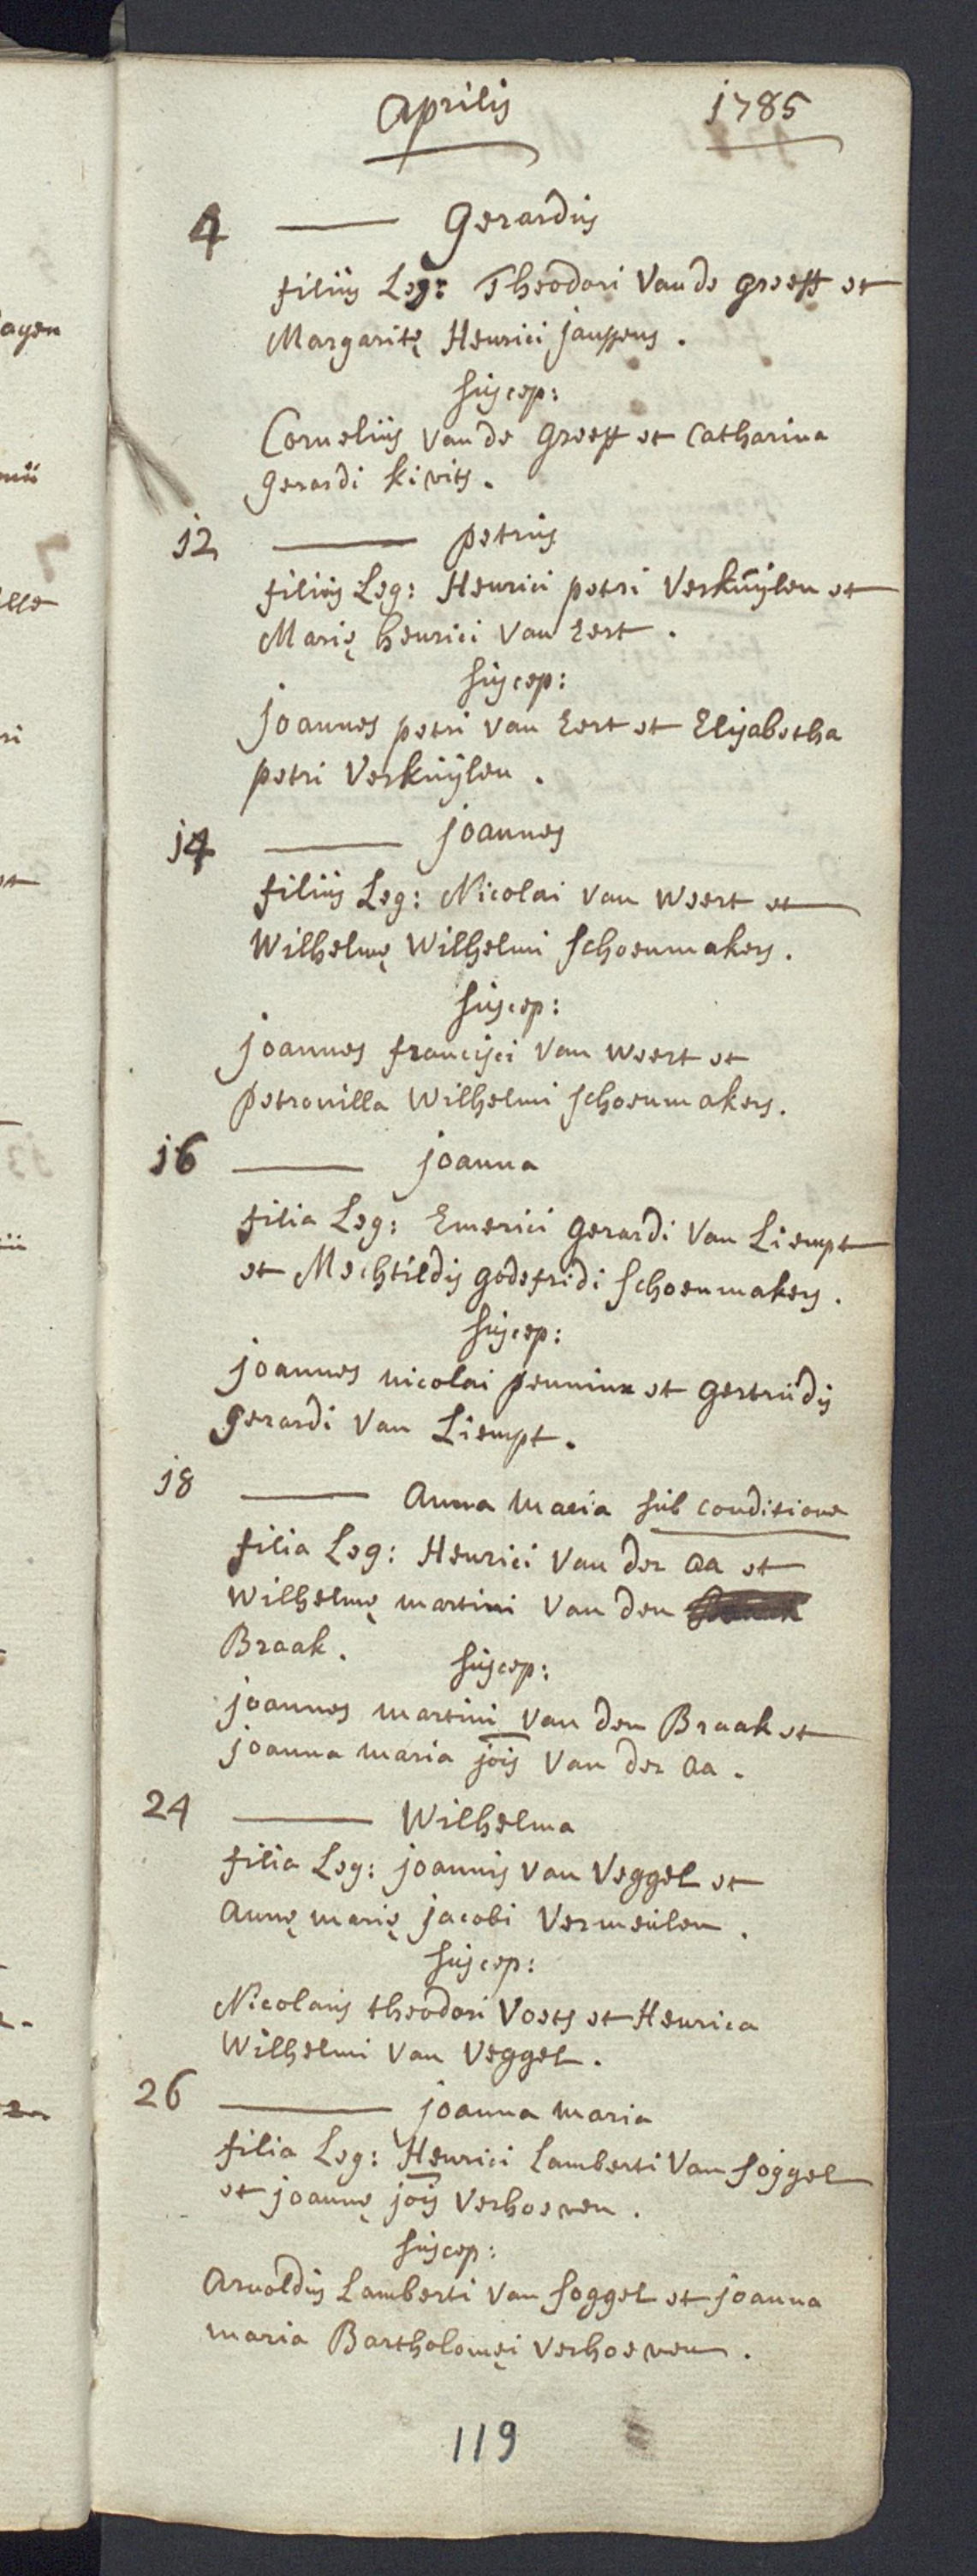 Aprilis 1785
4 —— Gerardus
filius Leg: Theodori Van de greeff et
Margaritę Henrici janssens.
suscep:
Cornelius van de greeff et Catharina
gerardi kivits.
12 —— petrus
filius Leg: Henrici petri Verkuÿlen et
Marię henrici Van Eert.
suscep:
joannes petri van Eert et Elisabetha
petri Verkuÿlen.
14 —— joannes
filius Leg: Nicolai van weert et
Wilhelmę Wilhelmi schoenmakers.
suscep:
joannes francisci van weert et
petronilla Wilhelmi schoenmakers.
16 —— joanna
filia Leg: Emerici gerardi Van Liempt
et Mechtildis godefridi schoenmakers.
suscep:
joannes nicolai penninx et gertrudis
gerardi Van Liempt.
18 —— Anna Maria sub conditione
filia Leg: Henrici Van der aa et
Wilhelmę martini Van den
Braak.
suscep:
joannes martini van den Braak et
joanna maria jois Van der aa.
24 —— Wilhelma
filia Leg: joannis van Veggel et
annę marię jacobi Vermeulen.
suscep:
Nicolaus theodori Voets et Henrica
Wilhelmi Van Veggel.
26 —— joanna maria
filia Leg: Henrici Lamberti Van soggel
et joannę jois Verhoeven.
suscep:
Arnoldus Lamberti Van soggel et joanna
maria Bartholomęi Verhoeven.
119